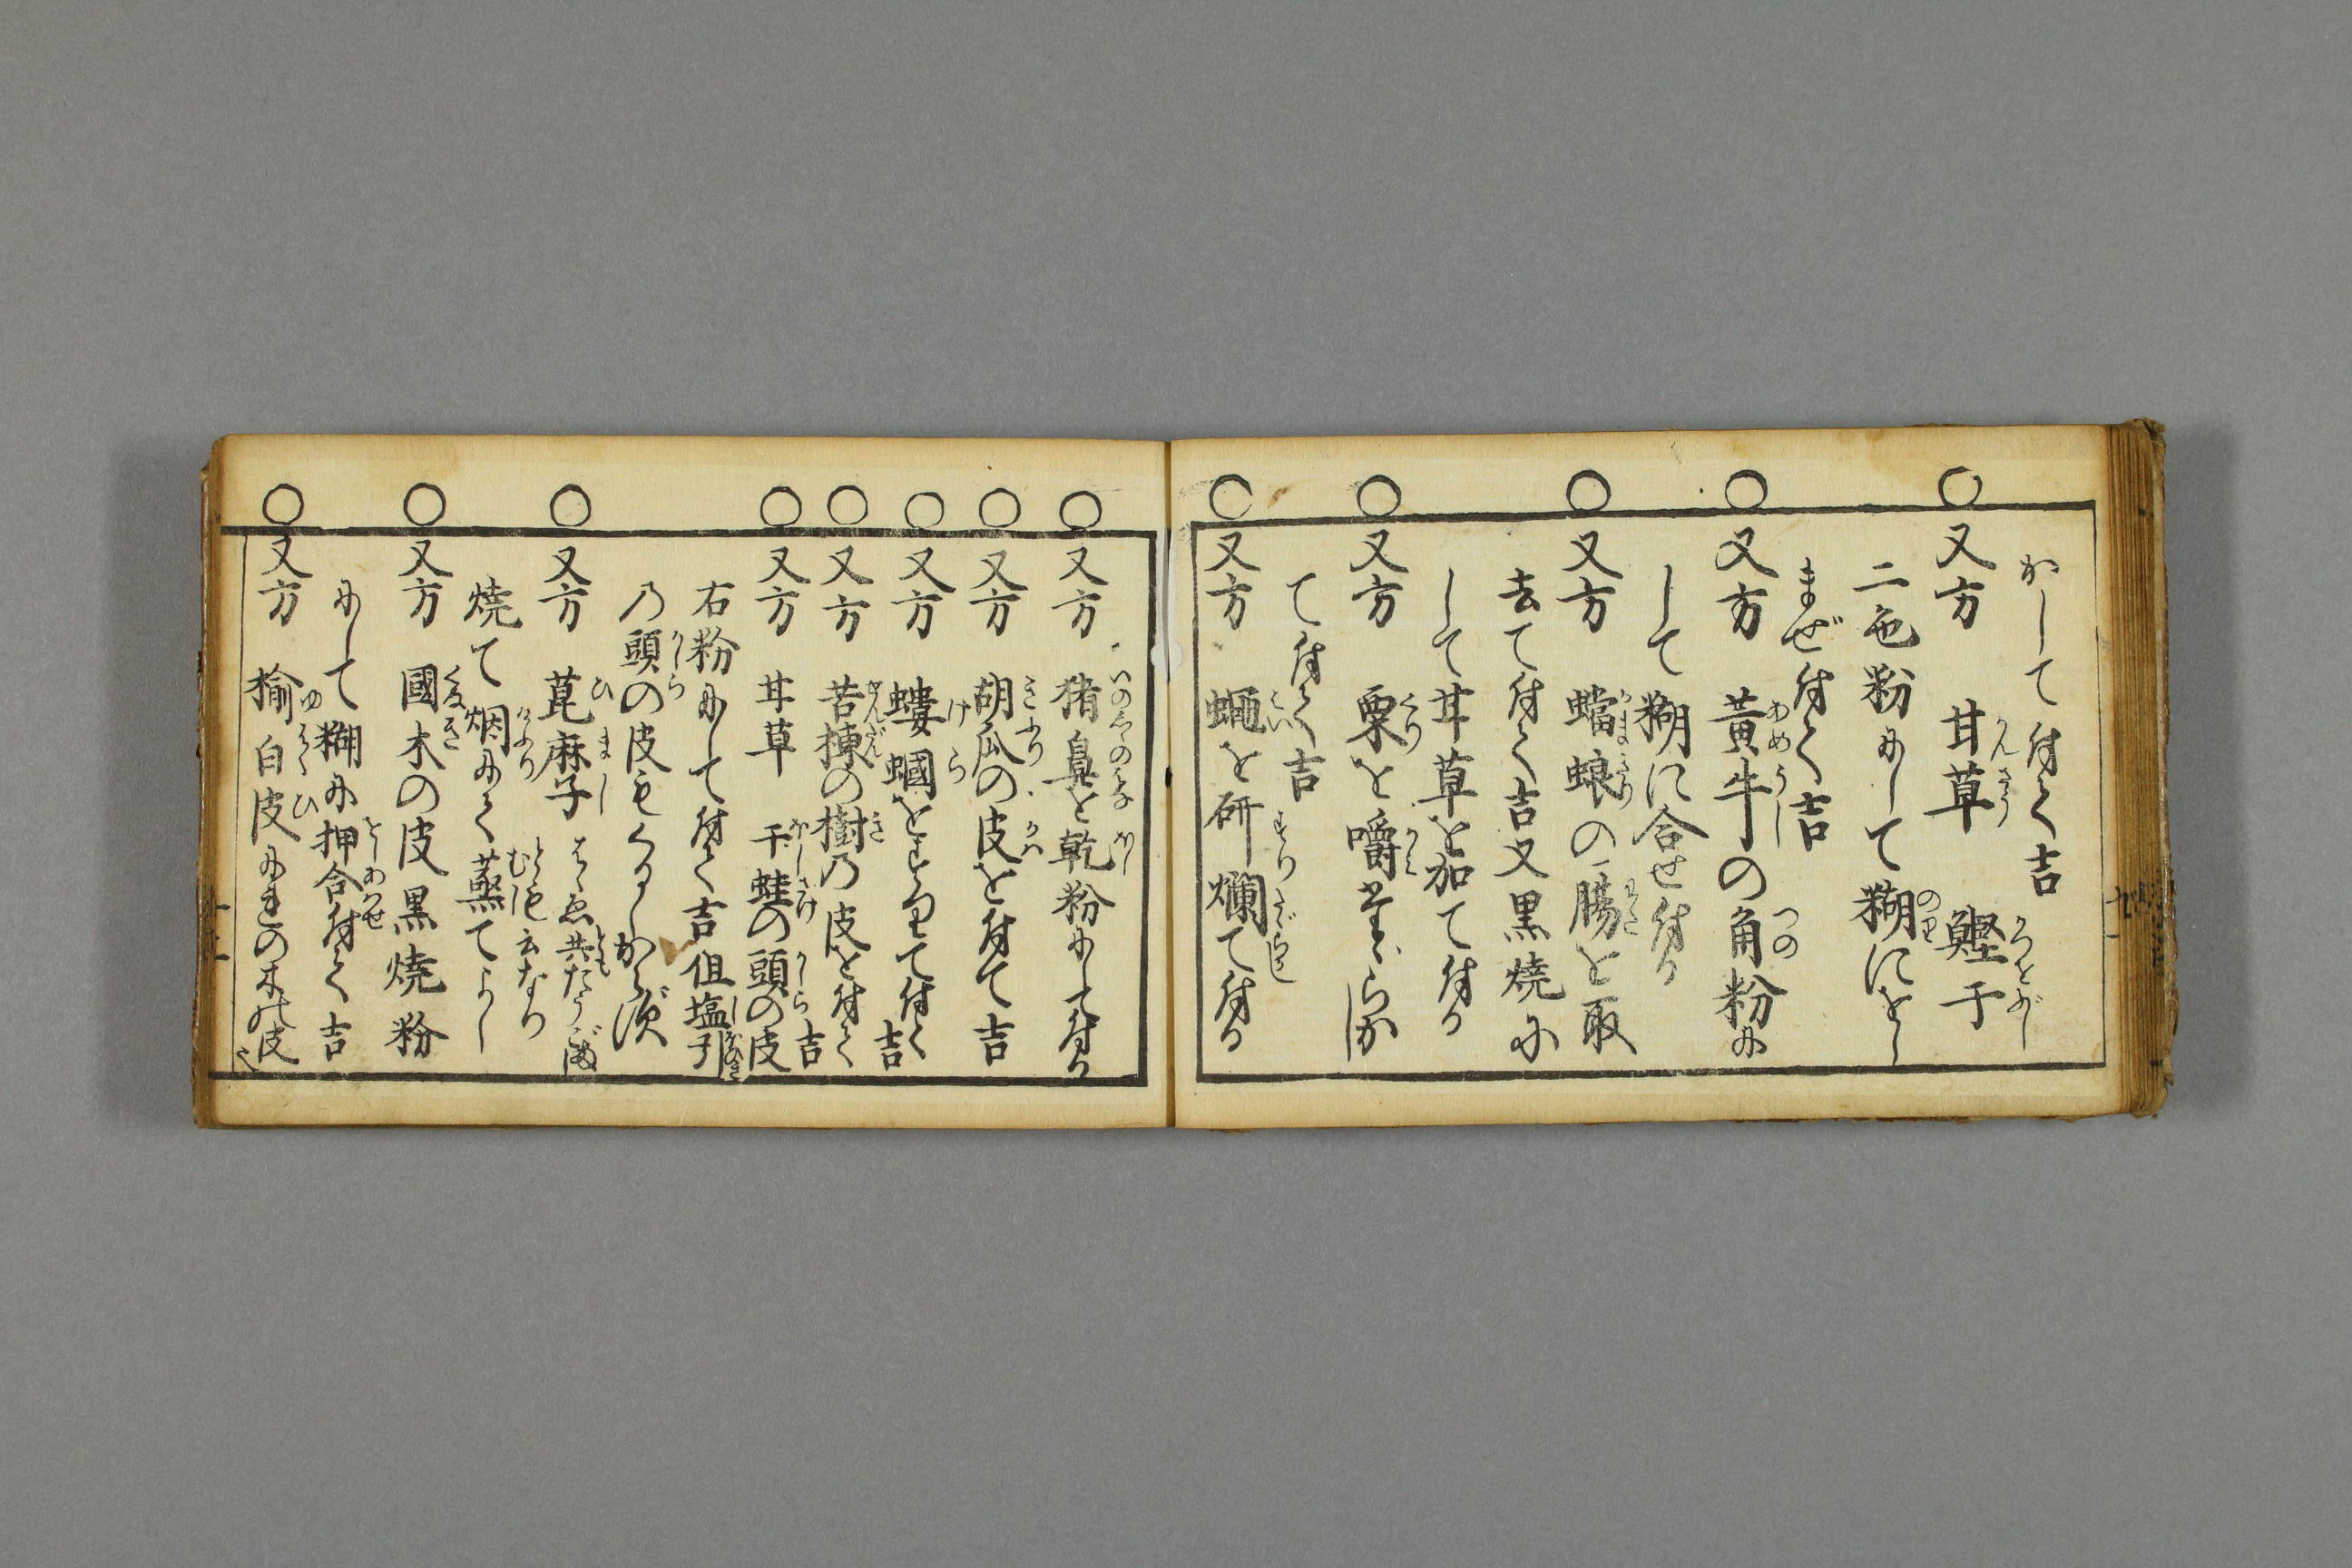 かして付てよし吉
又方 甘草 鰹干
二色粉にして糊にをし
まぜ付て吉
又方 黄牛の角粉に
して糊に合せ付る
又方 蟷蜋の腸を取
去て付て吉又黒焼に
して甘草を加て付る
又方 栗を嚼
て付て吉
又方 蝿を研爛て付る
又方 猪鼻を乾粉にして付る
又方 胡瓜の皮を付て吉
又方 螻蟈を付て吉
又方 苦楝の樹乃皮を付て吉
又方 甘草 干鮭の頭の皮
右粉にして付て吉但塩引
乃頭の皮もくるしからず
又方 萆麻子
焼て烟にて蒸てよし
又方 國木の皮黒焼粉
にして糊に押合付て吉
又方 楡白皮